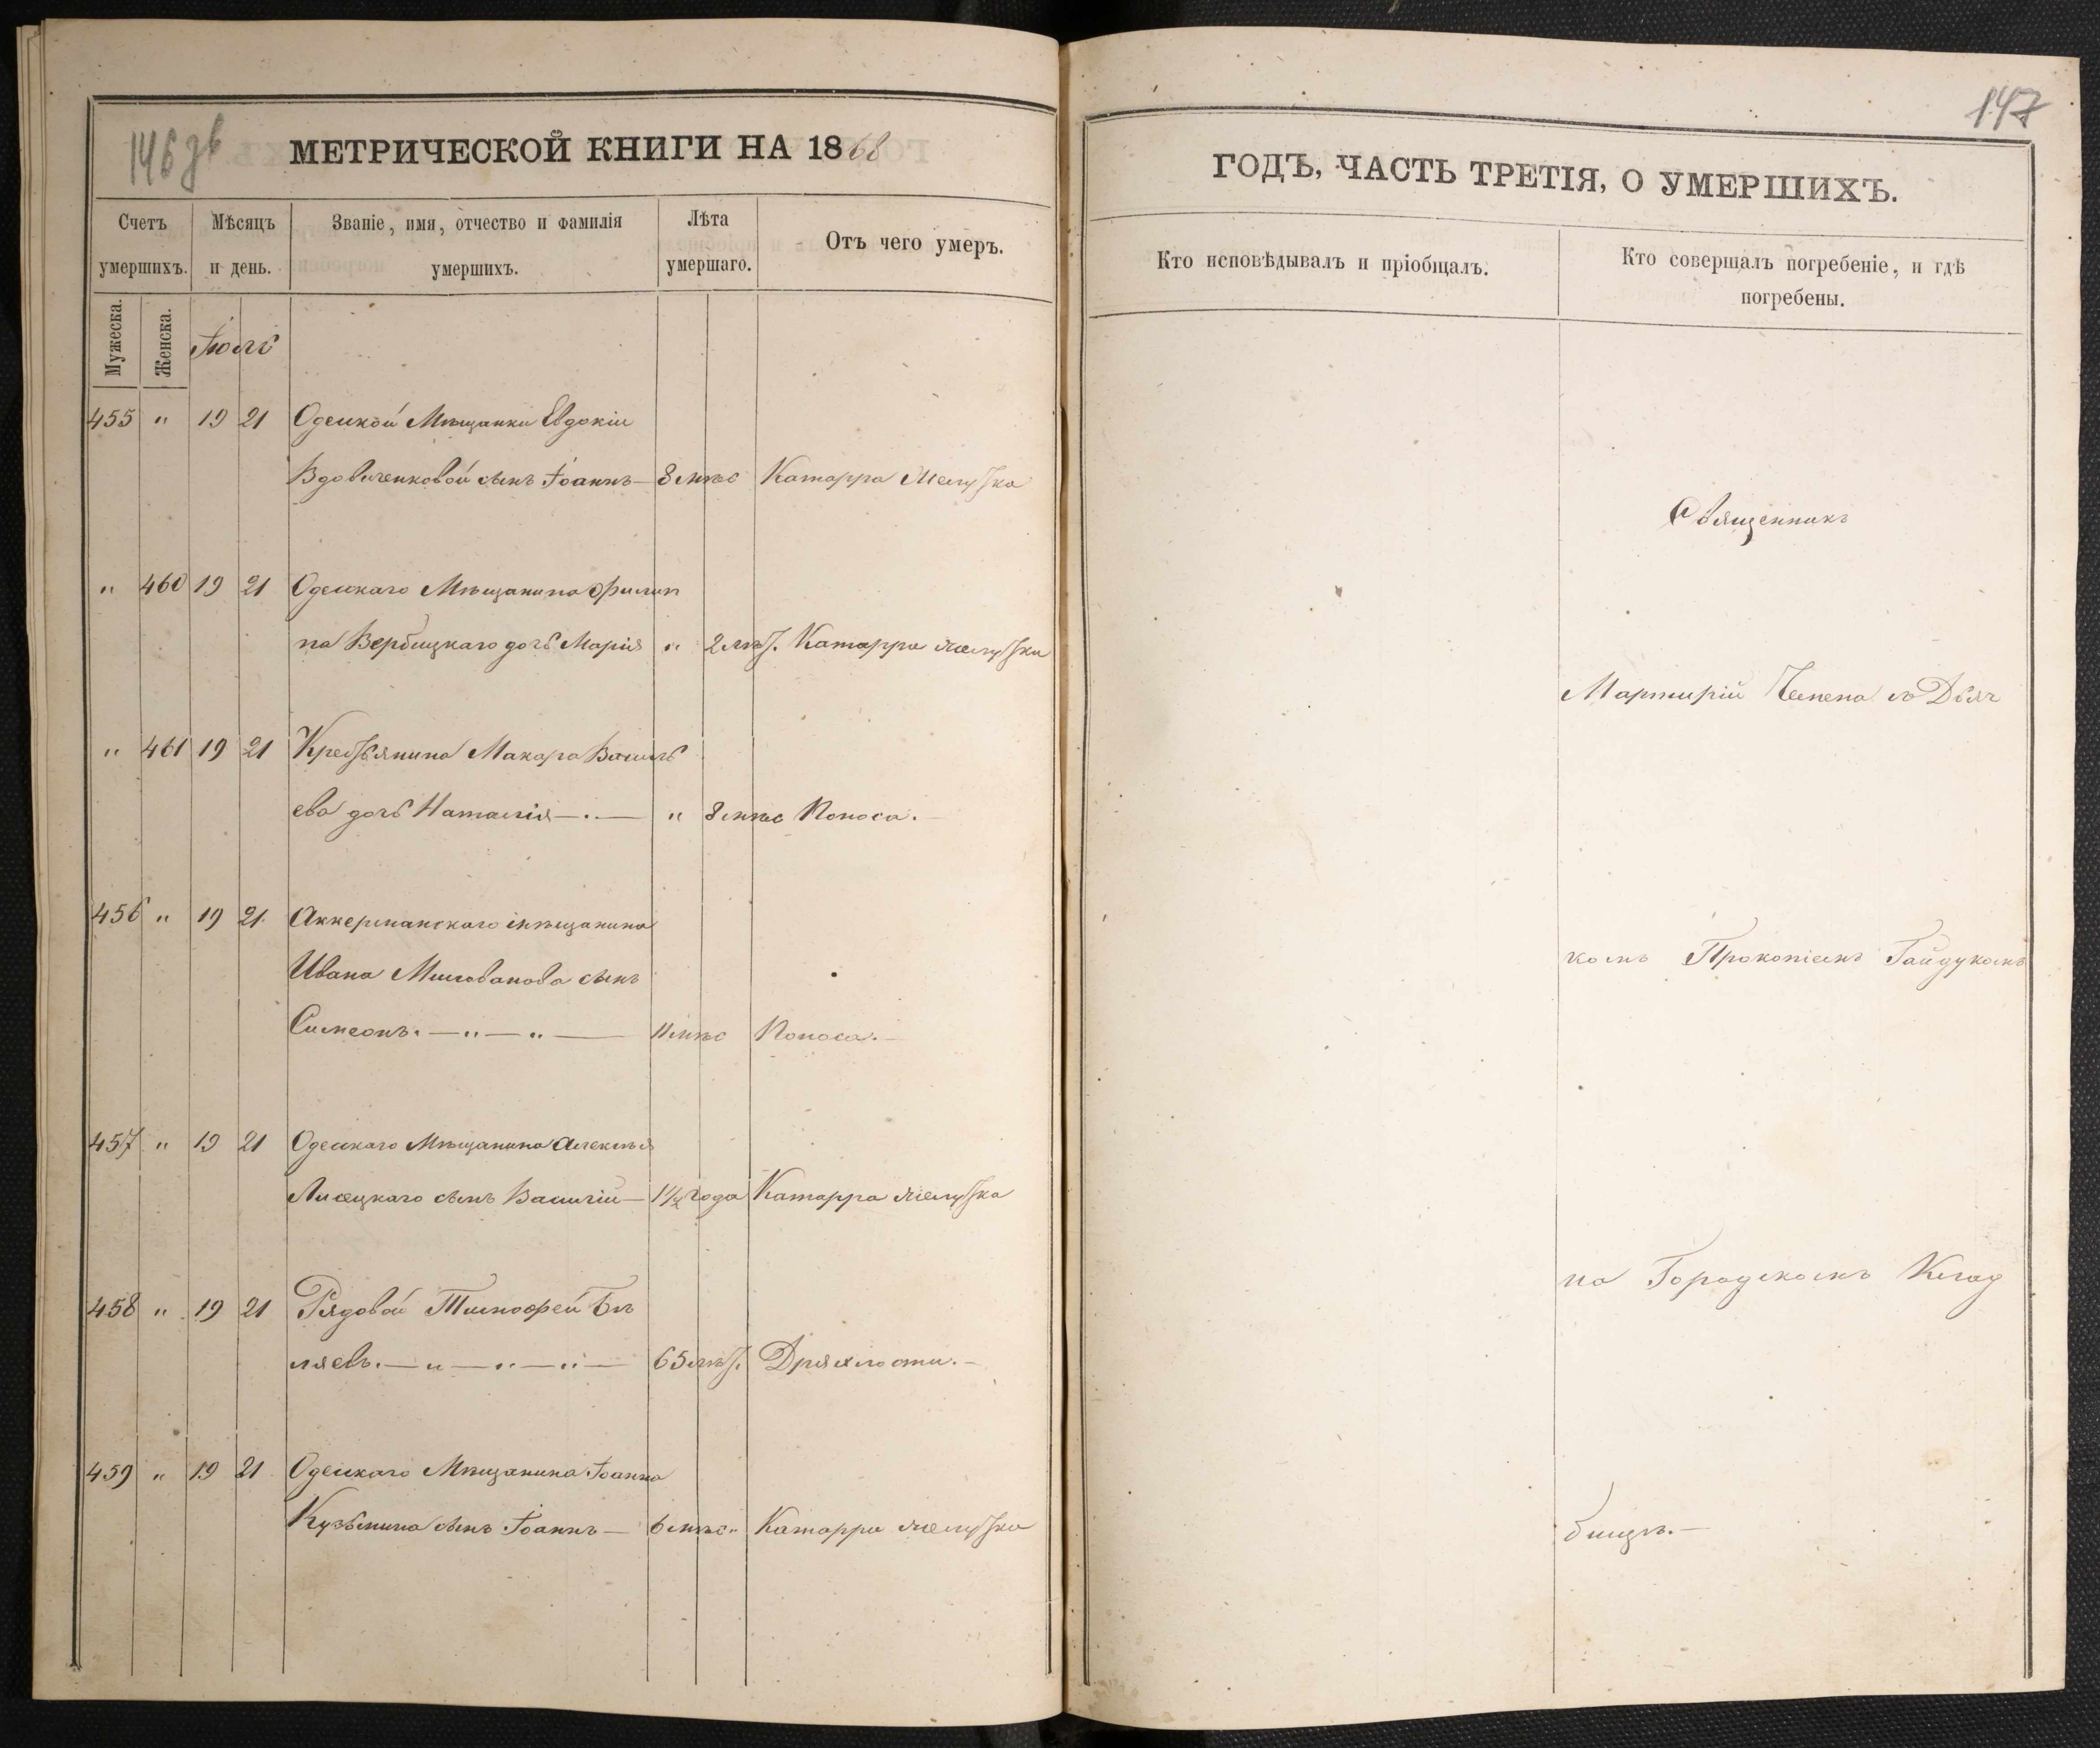 146 зв
МЕТРИЧЕСКОЙ КНИГИ НА 1868
Счетъ умершихъ.
Мѣсяцъ и день.
Званіе, имя, отчество и фамилія умершихъ.
Лѣта умершаго.
Отъ чего умеръ.
Мужеска.
Женска.
Іюль
455 " 19 21 Одесской Мѣщанки Евдокіи
Вдовиченковой сынъ Іоаннъ — 8 мѣс Катарра Желудка
" 460 19 21 Одесскаго Мѣщанина Филип
па Вербицкаго дочь Марія " 2 лѣт. Катарра желудка
" 461 19 21 Крестьянина Макара Василь
ева дочь Наталія —.— " 8 мѣс Поноса.
456 " 19 21 Аккерманскаго мѣщанина
Ивана Милованова сынъ
Симеонъ. — " — " — 11 мѣс Поноса. —
457 " 19 21 Одесскаго Мѣщанина Алексѣя
Лисецкаго сынъ Василій — 1½ года Катарра желудка
458 " 19 21 Рядовой Тимофей Бѣ
ляевъ. — " — " — " — 65 лѣт. Дряхлости. —
459 " 19 21 Одесскаго Мѣщанина Іоанна
Кузьмина сынъ Іоаннъ — 6 мѣс. Катарра желудка
147
ГОДЪ, ЧАСТЬ ТРЕТІЯ, О УМЕРШИХЪ.
Кто исповѣдывалъ и пріобщалъ.
Кто совершалъ погребеніе, и гдѣ погребены.
Священникъ
Мартирій Чемена съ Дьяч
комъ Прокопіемъ Гайдукомъ
на Городскомъ Клад
бищѣ. —